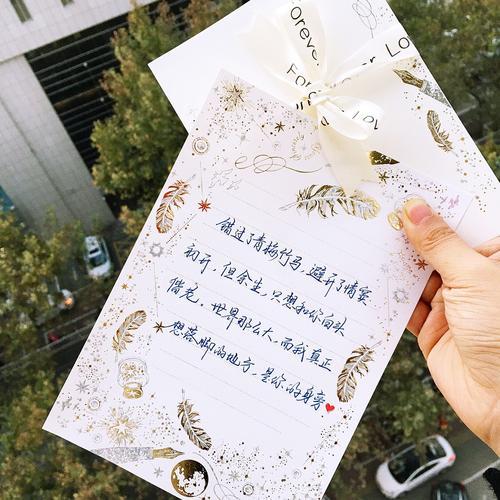 Forever Lo
Forever Love
错过了青梅竹马,避开了情窦
初开,但余生,只想和你白头
偕老,世界那么大,而我真正
想落脚的地方,是你的身旁